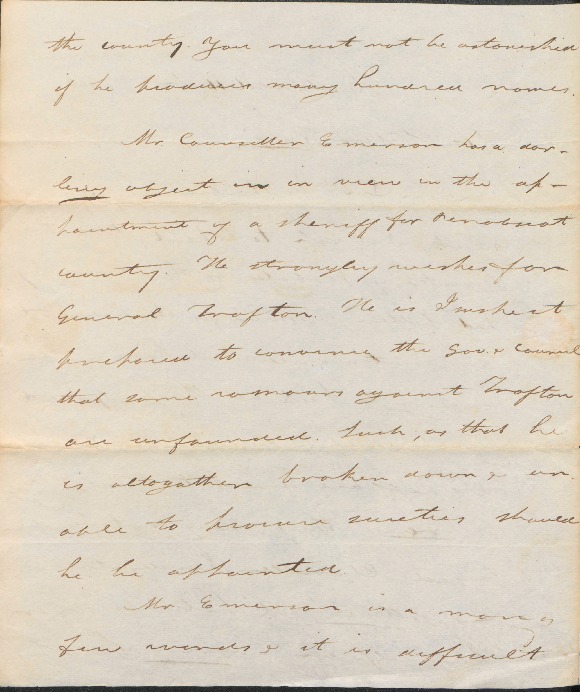 the county. You must not be astonished
if he produces many hundred names.
Mr. Counseller Emerson has a dar-
ling object in in view in the ap-
pointment of a sheriff for Penobscot
county. He strongley wishes for
General Trafton. He is I
prepared to convince the Gov. & Council
that some romours against Trafton
are unfounded. Such, as that he
is altogather broken down & un-
able to procure sureties should
he be appointed.
Mr Emerson is a man of
few words & it is difficult